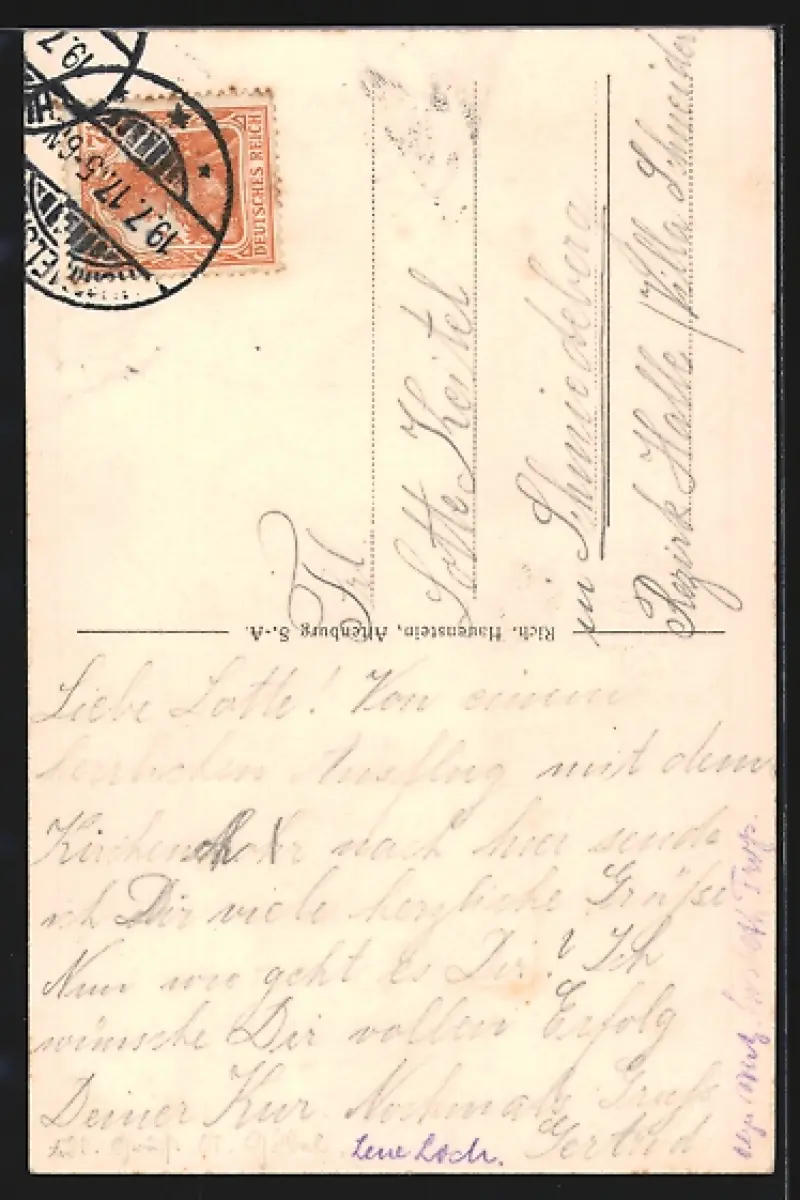 19.7.17. 5-6 N
DEUTSCHES REICH
Frl.
Lotte Keitel
in Schmiedeberg
Bezirk Halle (Villa Schneider
Rich. Hauenstein, Altenburg S.-A.
Liebe Lotte! Von einem
herrlichen Ausflug mit dem
Kirchenchor nach hier sende
ich Dir viele herzliche Grüße
Nun wie geht es Dir? Ich
wünsche Dir vollen Erfolg
Deiner Kur. Nochmals Gruß
Gertrud
Lene Loch.